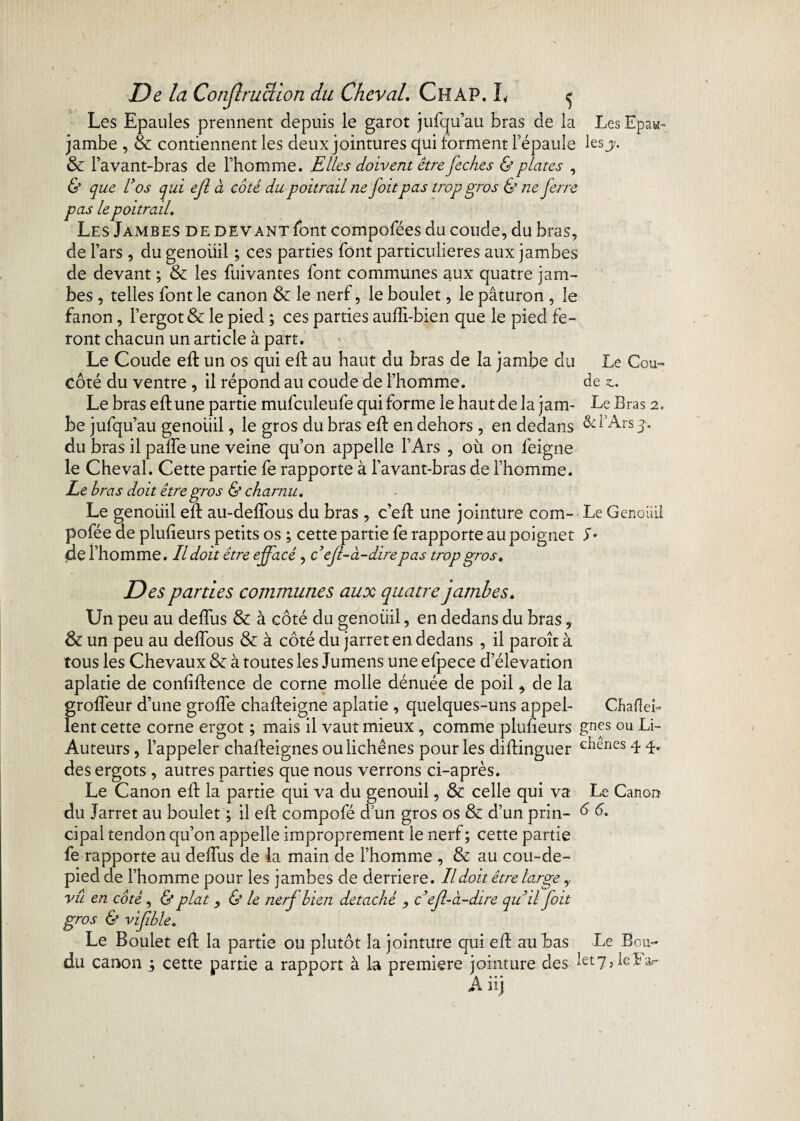 De la Conſtruction du Cheval. CHAP. I. 5
Les Epaules prennent depuis le garot juſqu'au bras de la Les Epau-
jambe , & contiennent les deux jointures qui forment l'épaule les y.
& l'avant-bras de l'homme. Elles doivent être ſeches & plates ,
& que l'os qui eſt à côté du poitrail ne ſoit pas trop gros & ne ſerre
pas le poitrail.
LES JAMBES DE DEVANT ſont compoſées du coude, du bras,
de l'ars , du genoüil ; ces parties ſont particulieres aux jambes
de devant ; & les ſuivantes ſont communes aux quatre jam-
bes , telles ſont le canon & le nerf, le boulet, le pâturon , le
fanon , l'ergot & le pied ; ces parties auſſi-bien que le pied ſe-
ront chacun un article à part.
Le Coude eſt un os qui eſt au haut du bras de la jambe du Le Cou-
côté du ventre , il répond au coude de l'homme. de z.
Le bras eſt une partie muſculeuſe qui forme le haut de la jam- Le Bras 2.
be juſqu'au genoüil, le gros du bras eſt en dehors , en dedans & l'Ars 3.
du bras il paſſe une veine qu'on appelle l'Ars , où on ſeigne
le Cheval. Cette partie ſe rapporte à l'avant-bras de l'homme.
Le bras doit être gros & charnu.
Le genoüil eſt au-deſſous du bras , c'eſt une jointure com- Le Genoüil
poſée de pluſieurs petits os ; cette partie ſe rapporte au poignet 5.
de l'homme. Il doit être effacé , c'eſt-à-dire pas trop gros.
Des parties communes aux quatre jambes.
Un peu au deſſus & à côté du genoüil, en dedans du bras,
& un peu au deſſous & à côté du jarret en dedans , il paroît à
tous les Chevaux & à toutes les Jumens une eſpece d'élevation
aplatie de conſiſtence de corne molle dénuée de poil , de la
groſſeur d'une groſſe chaſteigne aplatie , quelques-uns appel- Chaſtei-
lent cette corne ergot ; mais il vaut mieux , comme pluſieurs gnes ou Li-
Auteurs , l'appeler chaſteignes ou lichênes pour les diſtinguer chênes 4 4.
des ergots , autres parties que nous verrons ci-après.
Le Canon eſt la partie qui va du genouil, & celle qui va Le Canon
du Jarret au boulet ; il eſt compoſé d'un gros os & d'un prin- 6 6.
cipal tendon qu'on appelle improprement le nerf; cette partie
ſe rapporte au deſſus de la main de l'homme , & au cou-de-
pied de l'homme pour les jambes de derriere. Il doit être large,
vû en côté , & plat , & le nerf bien detaché , c'eſt-à-dire qu'il ſoit
gros & viſible.
Le Boulet eſt la partie ou plutôt la jointure qui eſt au bas Le Bou-
du canon ; cette partie a rapport à la premiere jointure des let 7, le Pa-
A iij